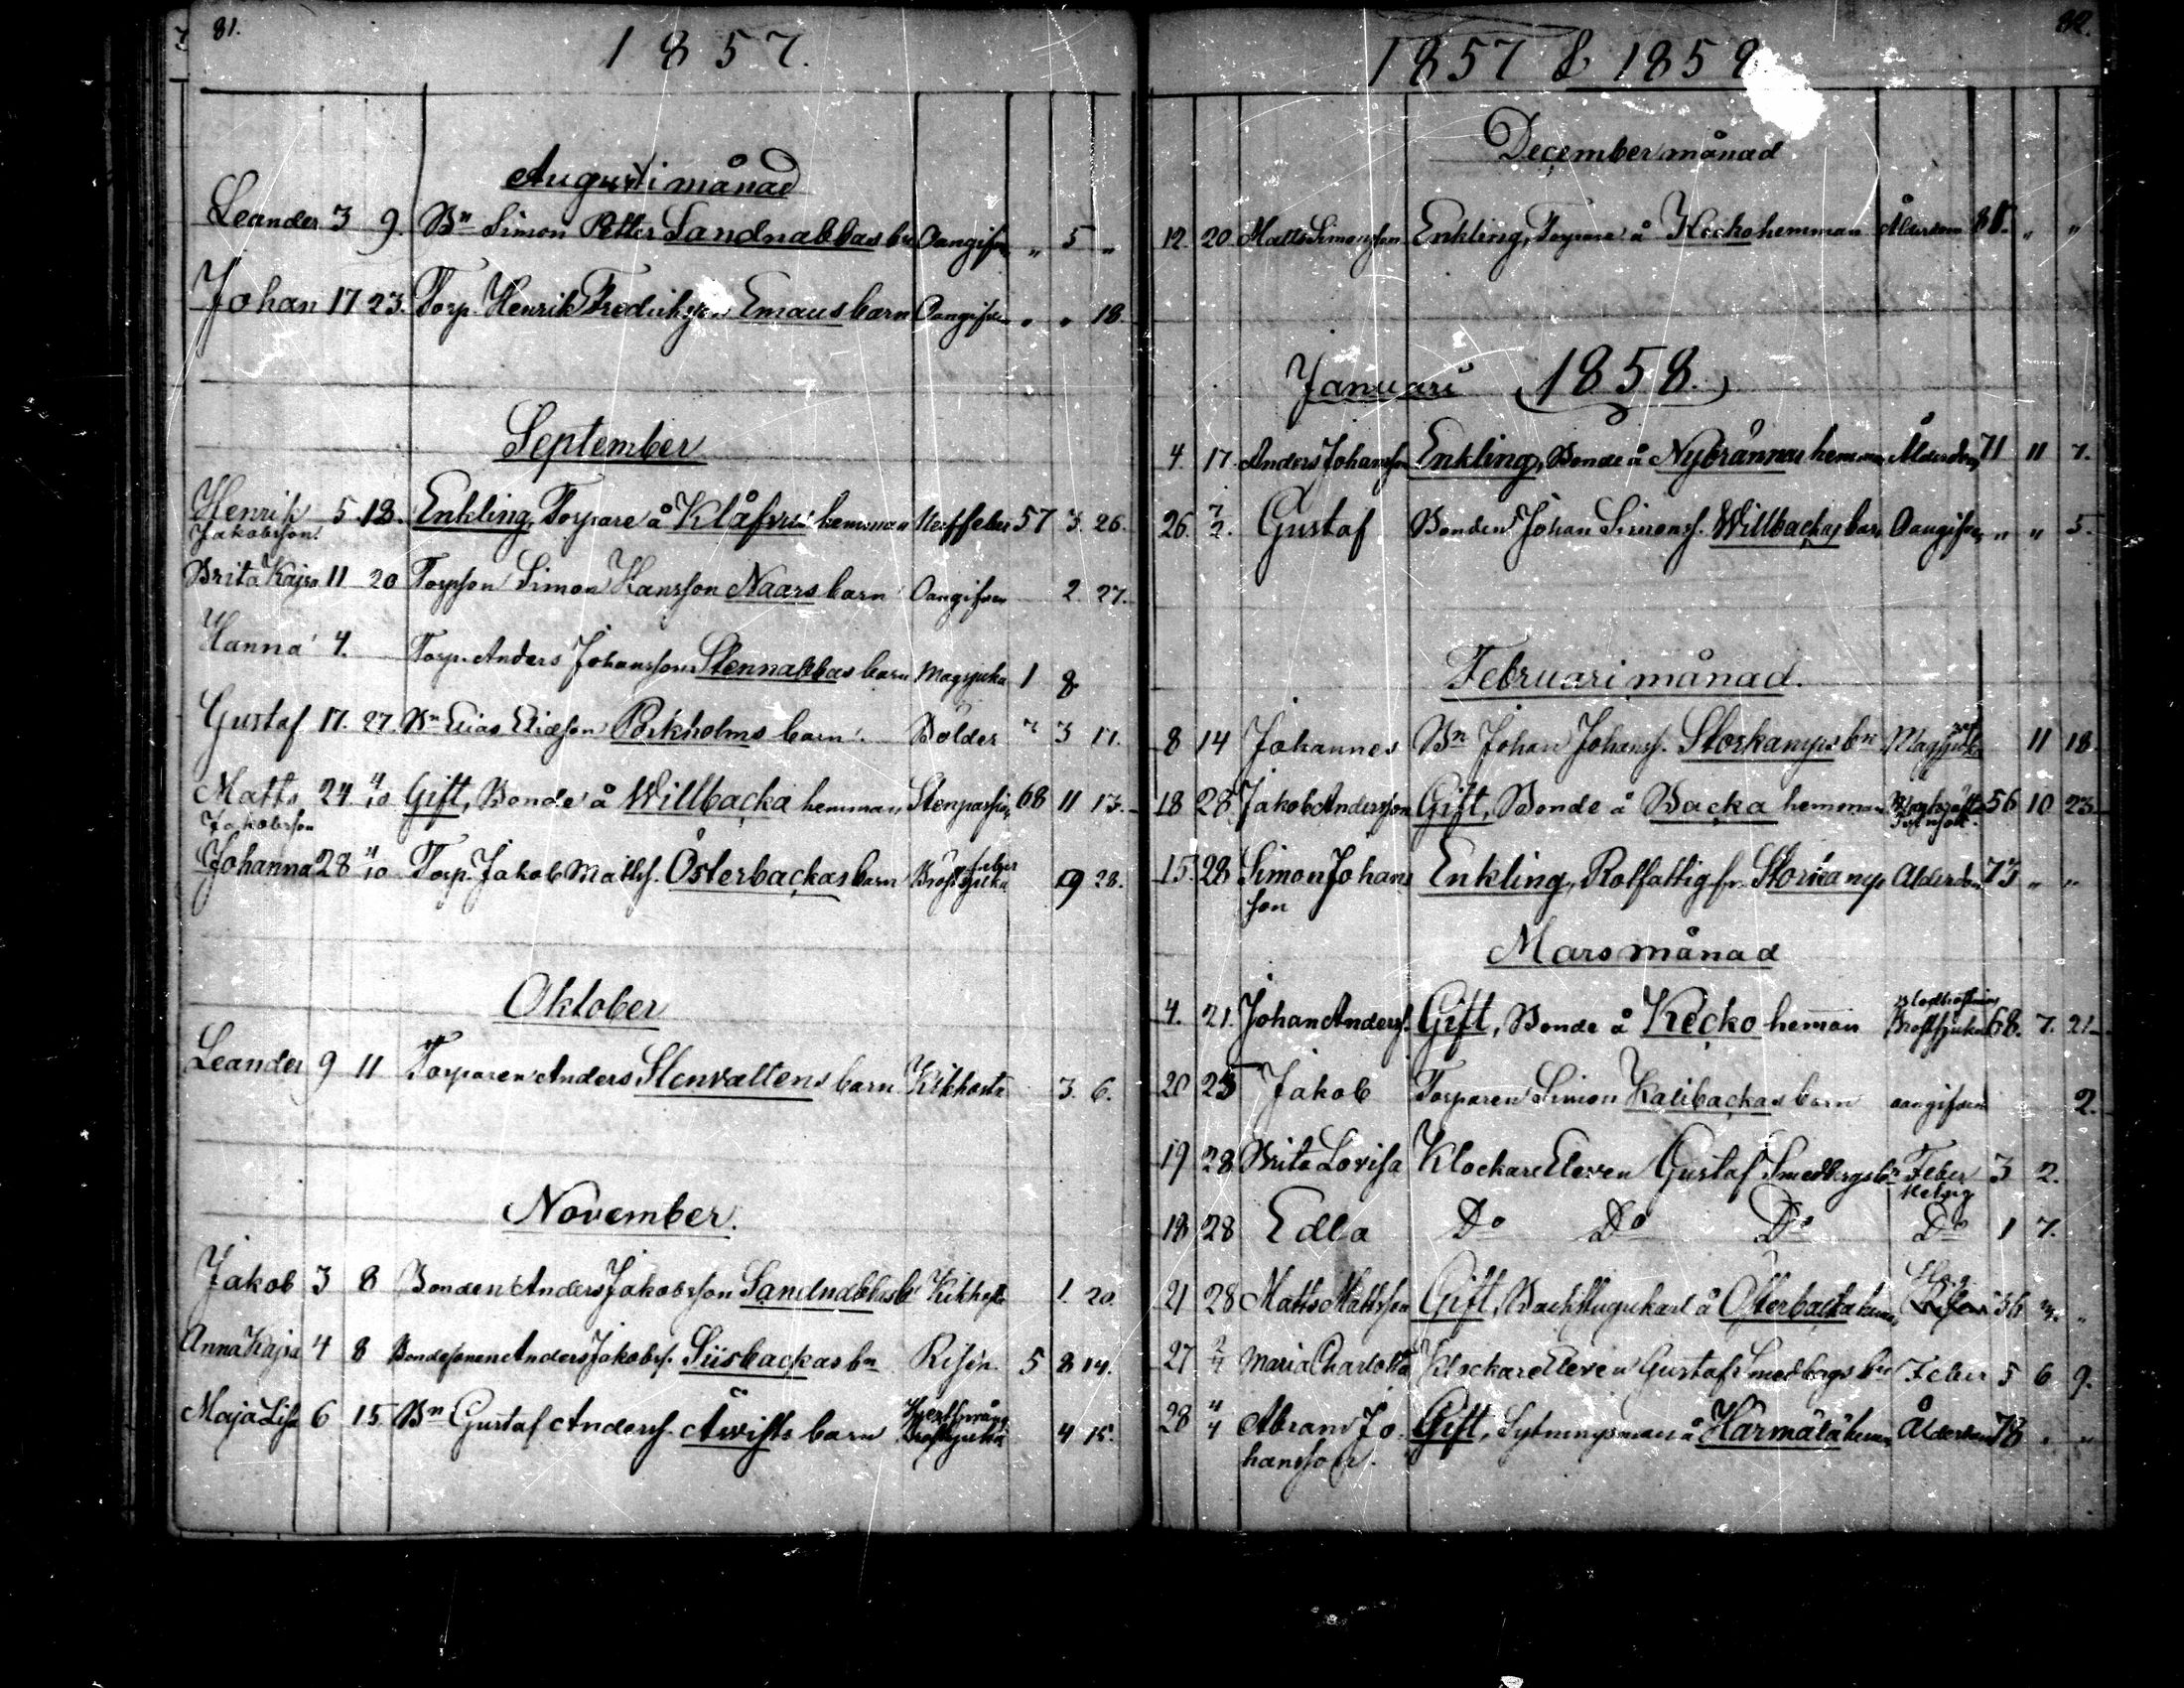 81.
1857.
Augusti månad
Leander 3 9. Bn Simon Petter Sandnabbas bn Oangifven " 5 "
Johan 17 23. Torp. Henrik Fredrikson Emaus barn Oangifven " " 18.
September
Henrik 5 13. Enkling, Torpare å Klåfvus hemman Nerffeber 57 3. 26.
Jakobsson
Brita Kajsa 11 20 Torpson Simon Hansson Naars barn Oangifven 2. 27.
Hanna 4. Torp. Anders Johansson Stennabbas barn Magsjuka 1 8
Gustaf 17. 27. Bn Elias Eliasson Porkholms barn Bölder " 3 17.
Matts 24 4/10 Gift, Bonde å Willbacka hemman Stenpassion 68 11 13.
Jakobsson
Johanna 28 4/10 Torp. Jakob Matts. Österbackas barn Bröstsjuka feber 9 28.
Oktober
Leander 9 11 Torparen Anders Stenvaltens barn Kikhosta 3. 6.
November.
Jakob 3 8 Bonden Anders Jakobsson Sandnabbas b. Kikhosta 1. 20.
Anna Kajsa 4 8 Bondesonen Anders Jakobs. Siisbackas bn Risin 5 8 14.
Maja Lisa 6 15. Bn Gustaf Anders. Åwists barn Bröstsjuka 4 15.
82.
1857 & 1858
December månad
12. 20. Matts Simonsson Enkling, Torpare å Kecko hemman Ålderdom 81 " "
Januari 1858.
4. 17. Anders Johansson Enkling, Bonde å Nybrännars hemman Ålderdom 71 11 7.
26. 7/2. Gustaf Bonden Johan Simons. Willbackas barn Oangifven " " 5.
Februari månad.
8 14 Johannes Bn Johan Johans. Storkamps bn Magsjuka 11 18.
18 28. Jakob Andersson Gift, Bonde å Backa hemman 56 10 23
15. 28 Simon Johans Enkling, Rotfattig fr. Storkamp Ålderdom 73 " "
son
Mars månad
4. 21. Johan Anders. Gift, Bonde å Kecko heman Blodhostning Bröstsjuka 68. 7. 21
20 25 Jakob Torparen Simon Kalibackas barn oangifven 2.
19 28 Brita Lovisa Klockare Eleven Gustaf Smedbergs bn Feber 3 2.
18 28 Edla Do Do Do Do 1 7.
21 28 Matts Mattsson Gift, Backstugukarl å Österbacka hemm. 36 3. "
27 2/4 Maria Charlotta Klockare Eleven Gustaf Smedbergs bn Feber 5 6 9.
28 4/4 Abram Jo Gift, Sytningsman å Härmälä hemm. Ålderdom 78 " "
hansson.